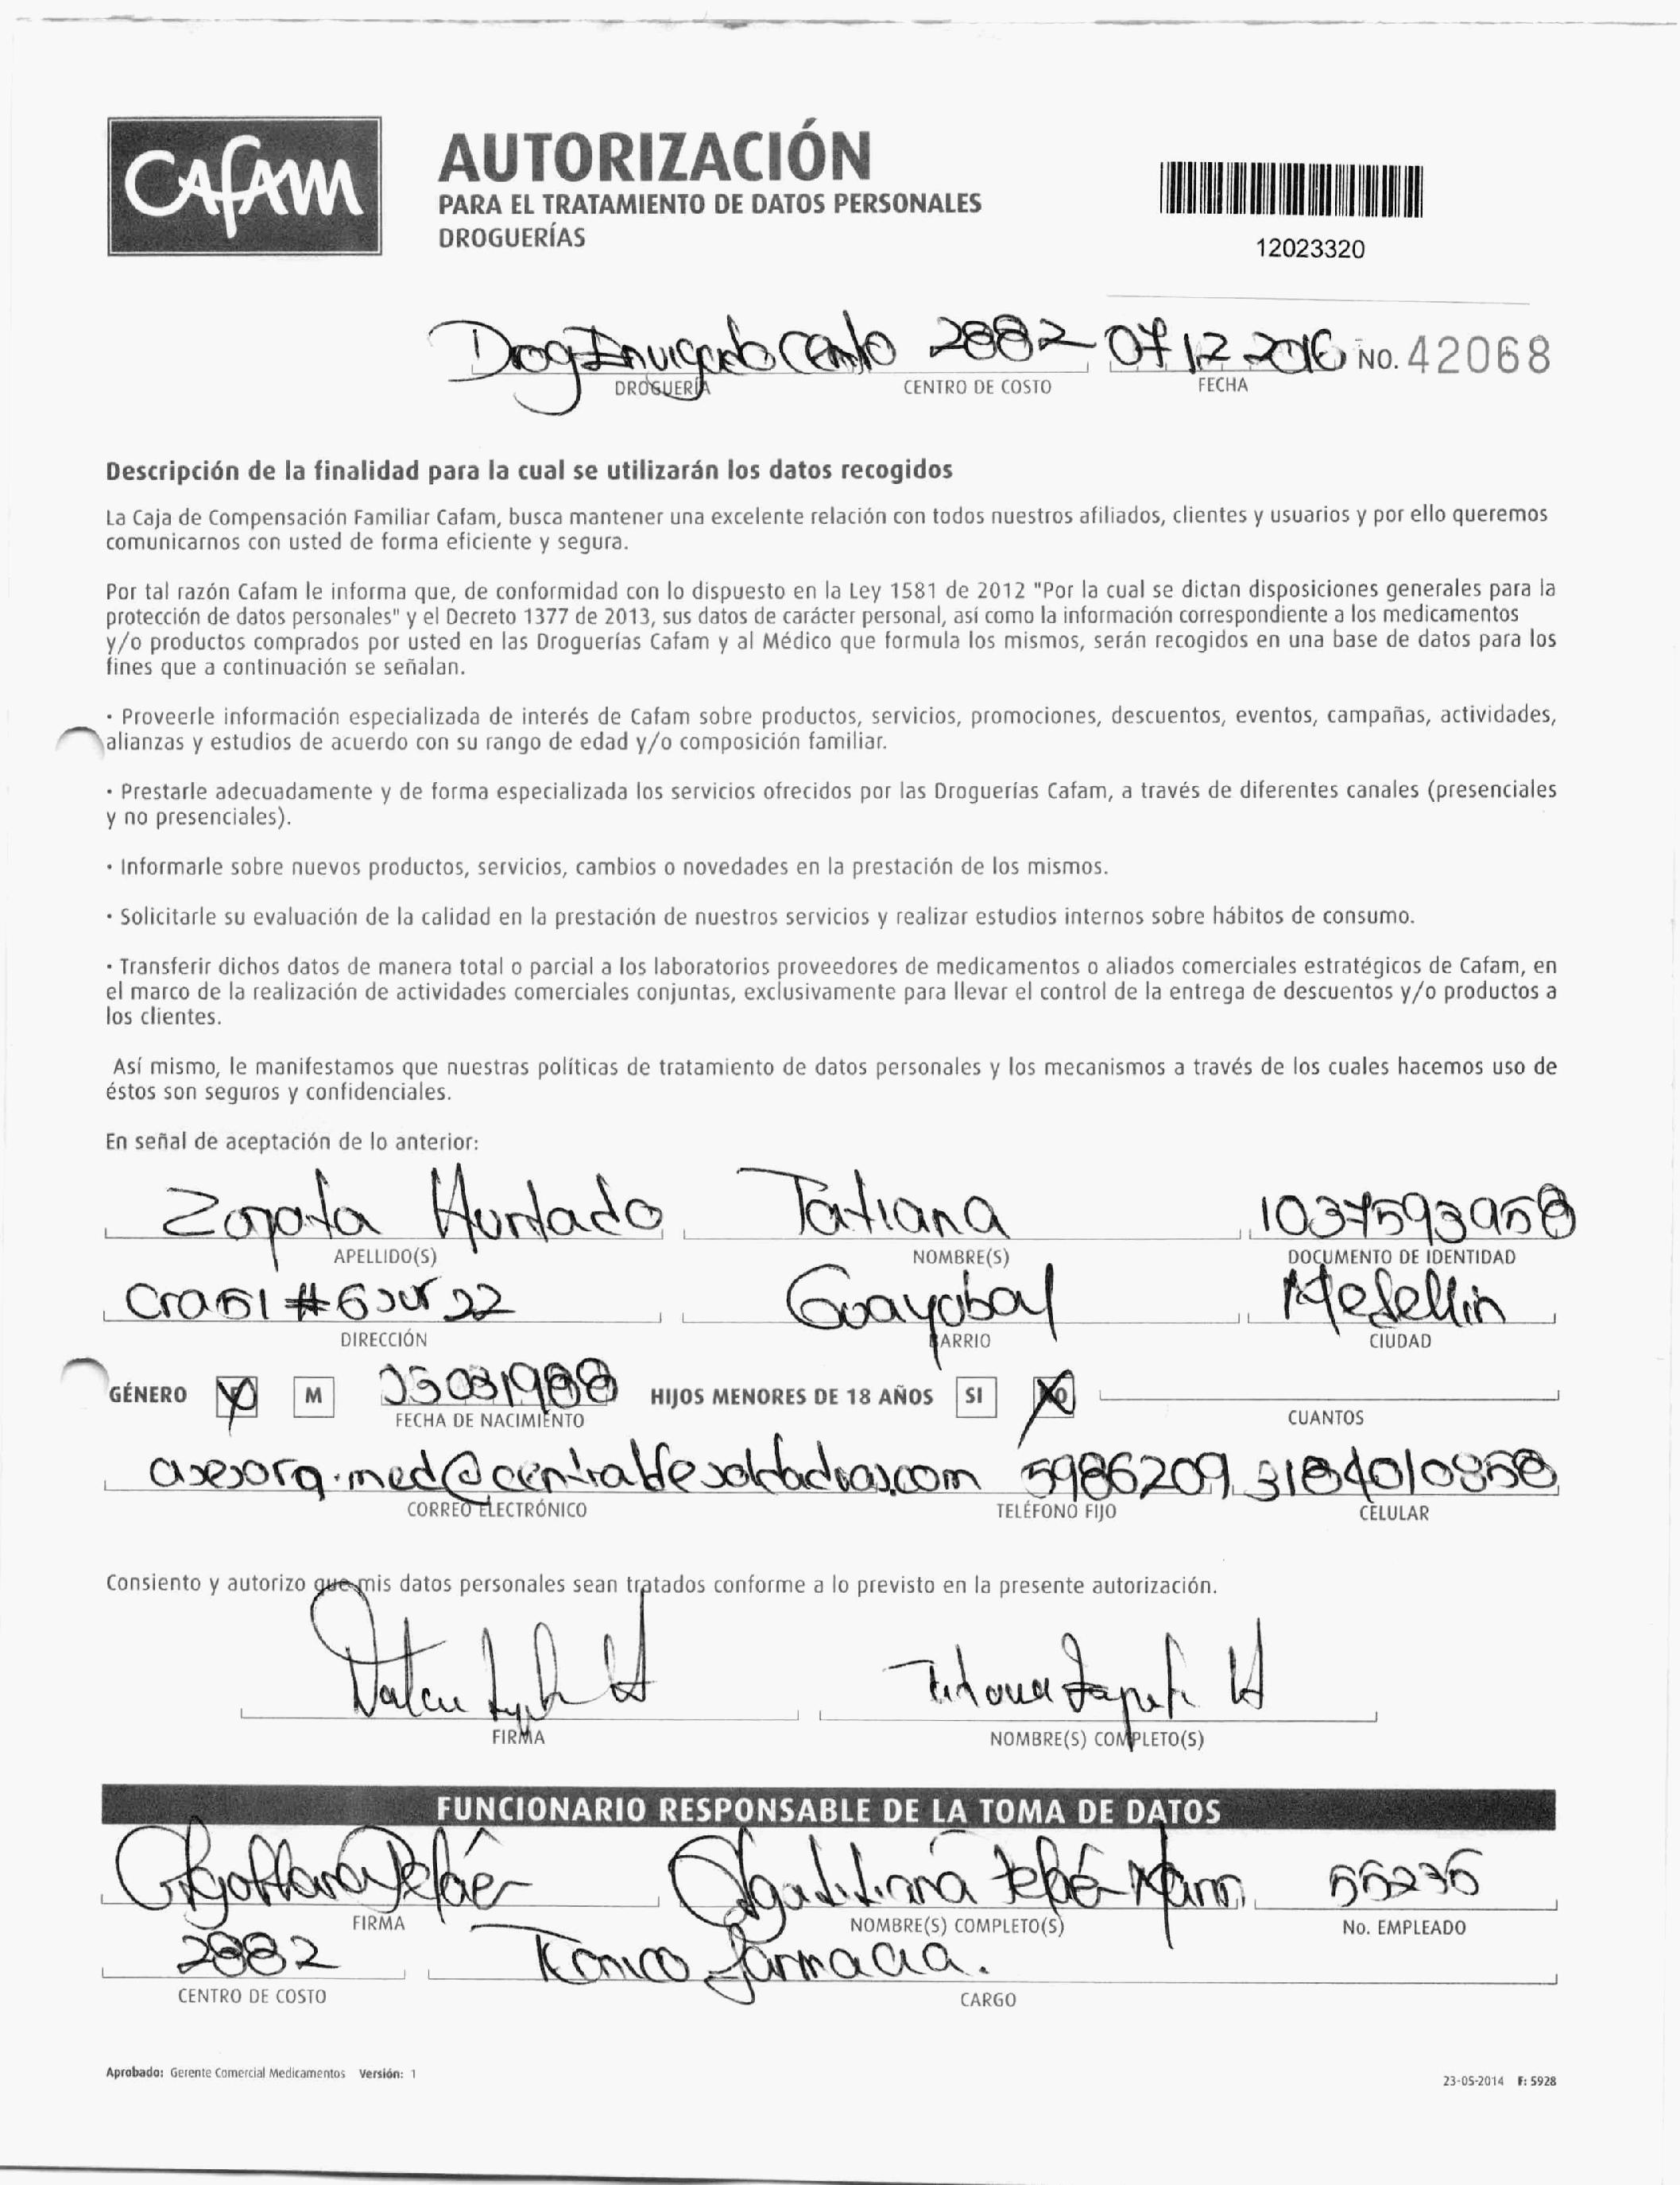 CAFAM
AUTORIZACIÓN
PARA EL TRATAMIENTO DE DATOS PERSONALES
DROGUERÍAS
12023320
Drog Envigado Cento 2882 07 12 2016 NO. 42068
DROGUERÍA CENTRO DE COSTO FECHA
Descripción de la finalidad para la cual se utilizarán los datos recogidos
La Caja de Compensación Familiar Cafam, busca mantener una excelente relación con todos nuestros afiliados, clientes y usuarios y por ello queremos
comunicarnos con usted de forma eficiente y segura.
Por tal razón Cafam le informa que, de conformidad con lo dispuesto en la Ley 1581 de 2012 "Por la cual se dictan disposiciones generales para la
protección de datos personales" y el Decreto 1377 de 2013, sus datos de carácter personal, así como la información correspondiente a los medicamentos
y/o productos comprados por usted en las Droguerías Cafam y al Médico que formula los mismos, serán recogidos en una base de datos para los
fines que a continuación se señalan.
· Proveerle información especializada de interés de Cafam sobre productos, servicios, promociones, descuentos, eventos, campañas, actividades,
alianzas y estudios de acuerdo con su rango de edad y/o composición familiar.
· Prestarle adecuadamente y de forma especializada los servicios ofrecidos por las Droguerías Cafam, a través de diferentes canales (presenciales
y no presenciales).
· Informarle sobre nuevos productos, servicios, cambios o novedades en la prestación de los mismos.
· Solicitarle su evaluación de la calidad en la prestación de nuestros servicios y realizar estudios internos sobre hábitos de consumo.
· Transferir dichos datos de manera total o parcial a los laboratorios proveedores de medicamentos o aliados comerciales estratégicos de Cafam, en
el marco de la realización de actividades comerciales conjuntas, exclusivamente para llevar el control de la entrega de descuentos y/o productos a
los clientes.
Así mismo, le manifestamos que nuestras políticas de tratamiento de datos personales y los mecanismos a través de los cuales hacemos uso de
éstos son seguros y confidenciales.
En señal de aceptación de lo anterior:
Zapata Hurtado Tatiana 1037593958
APELLIDO(S) NOMBRE(S) DOCUMENTO DE IDENTIDAD
Cra 51 # 6 sur 22 Guayabal Medellin
DIRECCIÓN BARRIO CIUDAD
GÉNERO M 25031988 HIJOS MENORES DE 18 AÑOS SI NO
FECHA DE NACIMIENTO CUANTOS
5986209 3184010858
CORREO ELECTRÓNICO TELÉFONO FIJO CELULAR
Consiento y autorizo que mis datos personales sean tratados conforme a lo previsto en la presente autorización.
Tatiana Zapata H
FIRMA NOMBRE(S) COMPLETO(S)
FUNCIONARIO RESPONSABLE DE LA TOMA DE DATOS
55235
FIRMA NOMBRE(S) COMPLETO(S) No. EMPLEADO
2882 Tecnico farmacia.
CENTRO DE COSTO CARGO
Aprobado: Gerente Comercial Medicamentos Versión: 1
23-05-2014 F: 5928